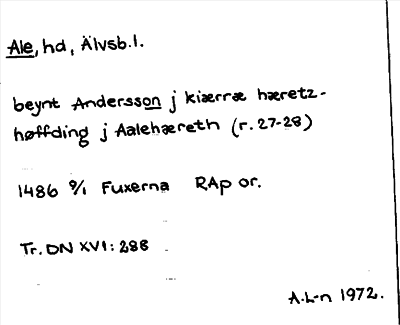 Ale, hd, Älvsb.l.
beynt Andersson j kiærræ hæretz-
høffding j Aalehæreth (r. 27-28)
1486 9/1 Fuxerna RAp or.
Tr. DN XVI: 288
A.L-n 1972.